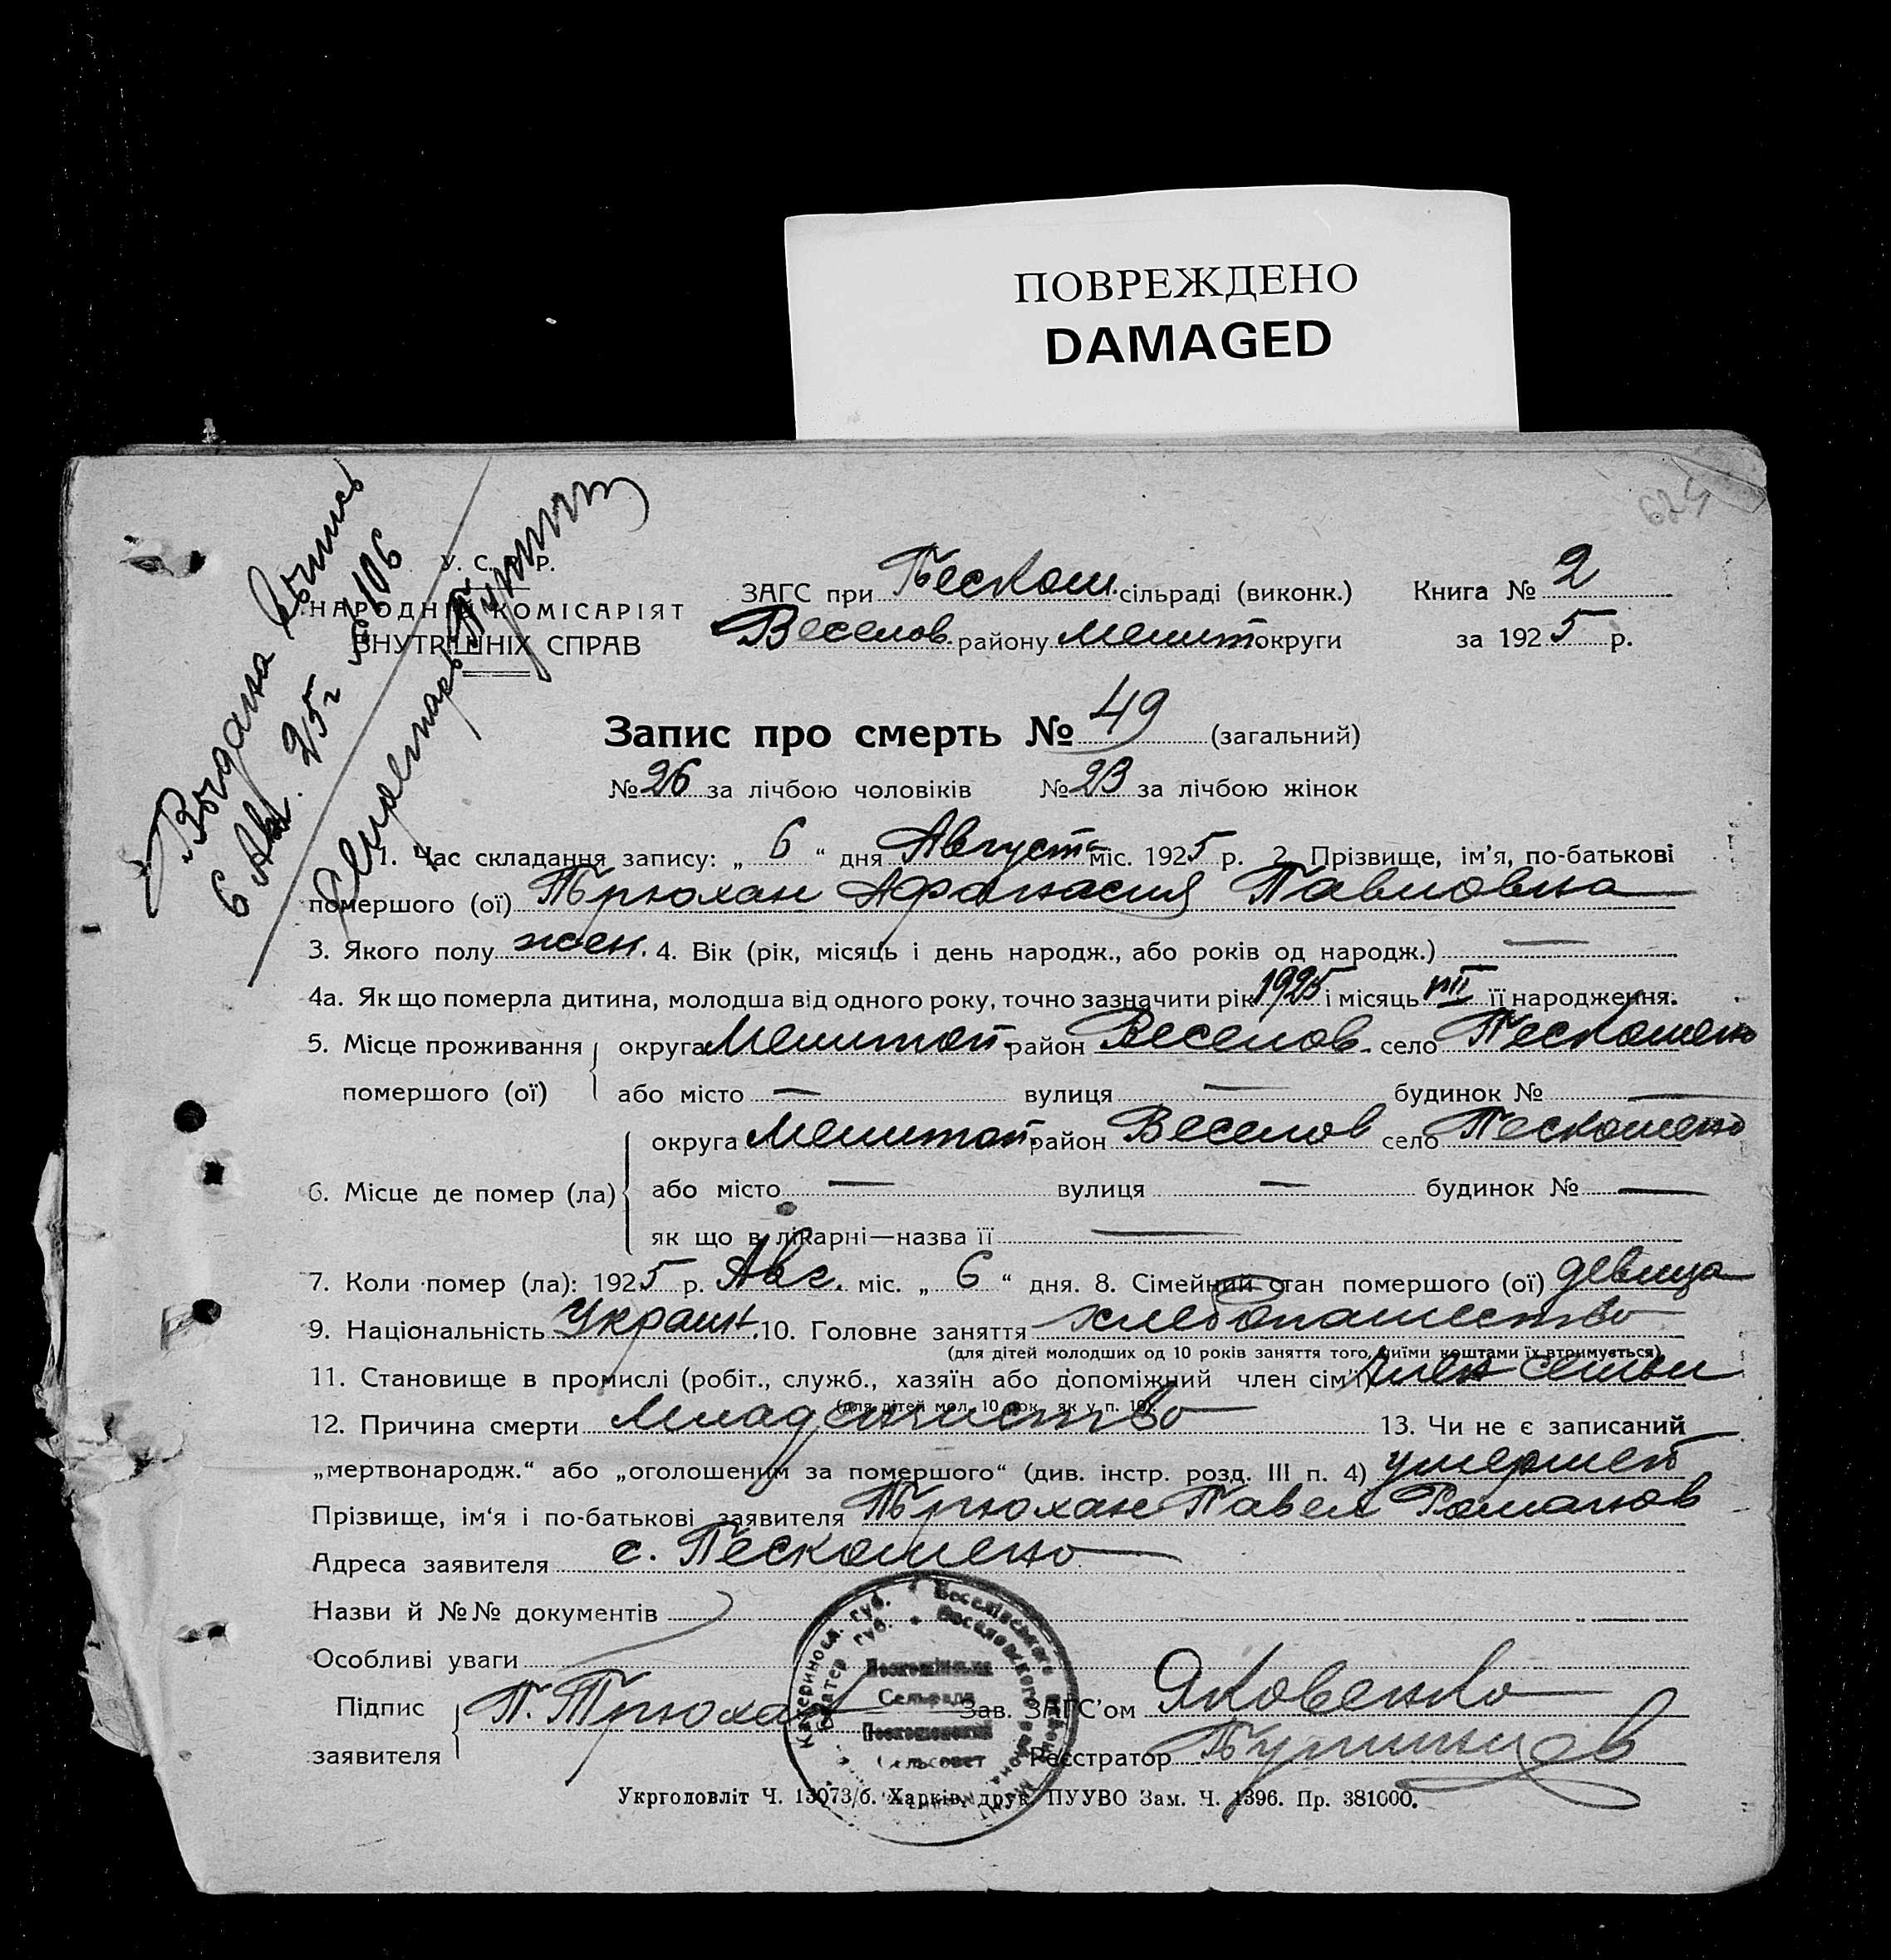 ПОВРЕЖДЕНО
DAMAGED
624
Выдана выпись
6 Авг. 25 г № 106
У. С. Р. Р.
НАРОДНІЙ КОМІСАРІЯТ
ВНУТРІШНІХ СПРАВ
ЗАГС при Пескош. сільраді (виконк.) Книга № 2
Веселов. району Мелит округи за 1925 р.
Запис про смерть № 49 (загальний)
№ 26 за лічбою чоловіків № 23 за лічбою жінок
1. Час складання запису: „ 6 “ дня Августа міс. 1925 р. 2. Прізвище, ім’я, по-батькові
помершого (ої) Трюхан Афанасия Павловна
3. Якого полу жен. 4. Вік (рік, місяць і день народж., або років од народж.) —
4а. Як що померла дитина, молодша від одного року, точно зазначити рік 1925 і місяць її народження.
5. Місце проживання округа Мелитоп. район Веселов. село Пескошено
помершого (ої) або місто — вулиця — будинок № —
округа Мелитоп. район Веселов село Пескошено
6. Місце де помер (ла) або місто — вулиця — будинок № —
як що в лікарні—назва її —
7. Коли помер (ла): 1925 р. Авг. міс. „ 6 “ дня. 8. Сімейний стан помершого (ої) девица
9. Національність Украин. 10. Головне заняття хлебопашество
(для дітей молодших од 10 років заняття того, чиїми коштами їх втримується)
11. Становище в промислі (робіт., служб., хазяїн або допоміжний член сім’ї) член семьи
(для дітей мол. 10 рок. як у п. 10).
12. Причина смерти Младенчиство 13. Чи не є записаний
„мертвонародж.“ або „оголошеним за помершого“ (див. інстр. розд. III п. 4) умершей
Прізвище, ім’я і по-батькові заявителя Трюхан Павел Романов
Адреса заявителя с. Пескошено
Назви й №№ документів
Особливі уваги
Підпис П. Трюхан Зав. ЗАГС’ом Яковенко
заявителя Реєстратор
Катериносл. губ. Веселівського
Екатер. губ. Веселовского района
Пескошінська
Сельрада
Пескошенский
Сельсовет
Укрголовліт Ч. 13073/б. Харків, друк. ПУУВО Зам. Ч. 1396. Пр. 381000.